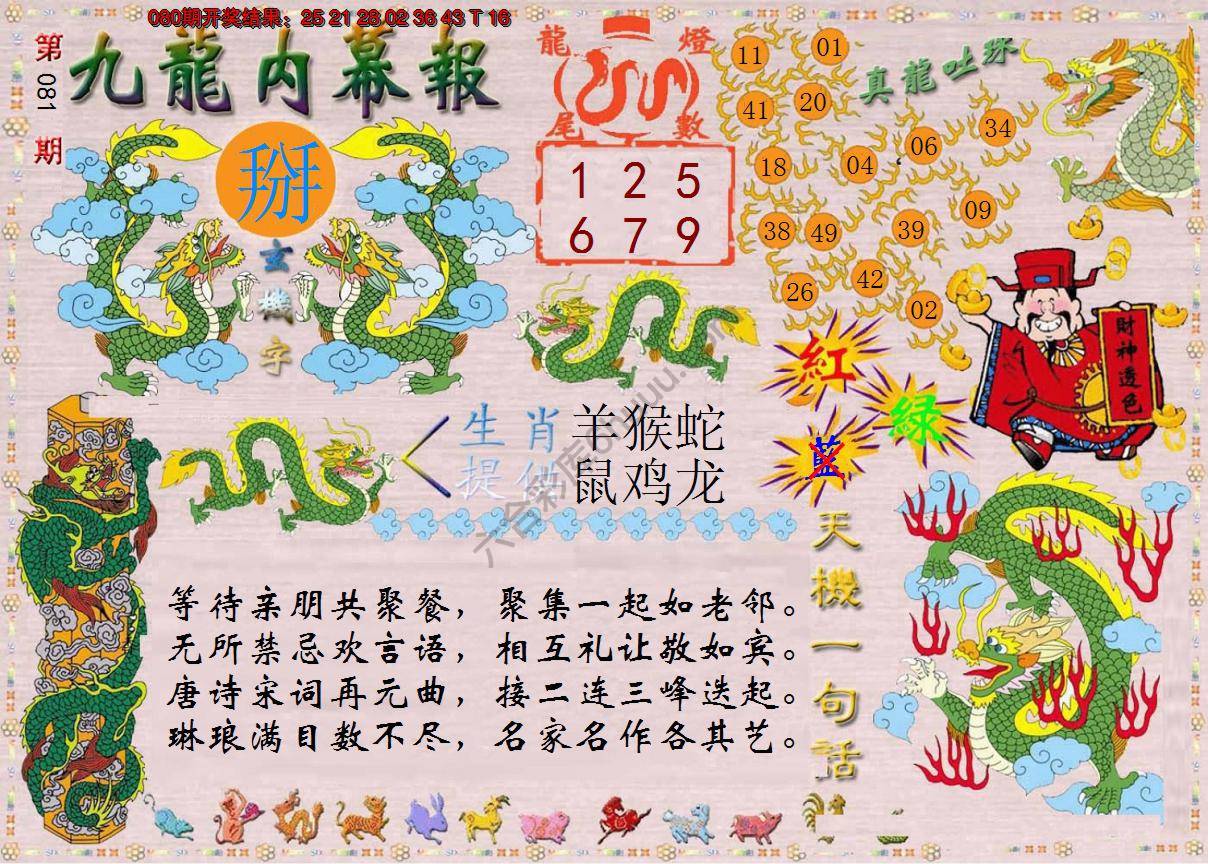 080期开奖结果：25 21 28 02 36 43 T 16
第
081
期
九龍内幕報
掰
玄
機
字
龍 燈
尾 數
1 2 5
6 7 9
真龍吐珠
11 01
41 20
18 04 06 34
38 49 39 09
26 42 02
紅
綠
藍
財神透色
生肖 羊猴蛇
提供 鼠鸡龙
六合彩库
等待亲朋共聚餐，聚集一起如老邻。
无所禁忌欢言语，相互礼让敬如宾。
唐诗宋词再元曲，接二连三峰迭起。
琳琅满目数不尽，名家名作各其艺。
天機一句話